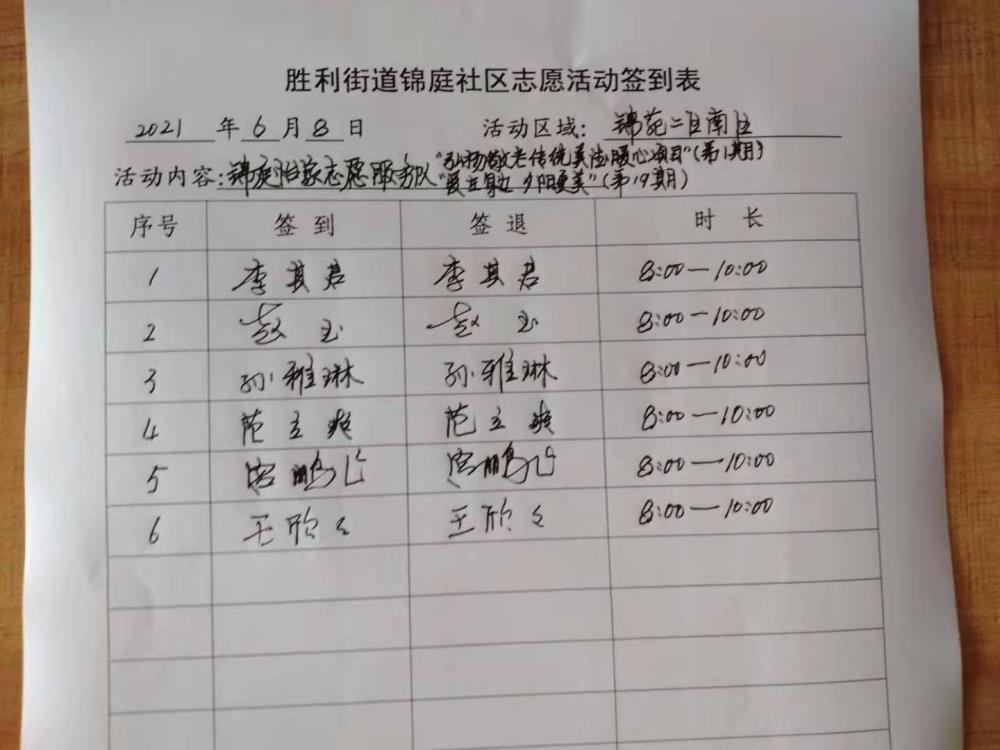 胜利街道锦庭社区志愿活动签到表
2021年6月8日 活动区域：锦苑二区南区
活动内容：锦庭怡家志愿服务队"弘扬敬老传统美德暖心项目"(第12期)
"爱在身边 夕阳更美"(第19期)
序号 签到 签退 时长
1 李其君 李其君 8:00—10:00
2 赵玉 赵玉 8:00—10:00
3 孙雅琳 孙雅琳 8:00—10:00
4 范立爽 范立爽 8:00—10:00
5 鹏 鹏 8:00—10:00
6 王欣々 王欣々 8:00—10:00